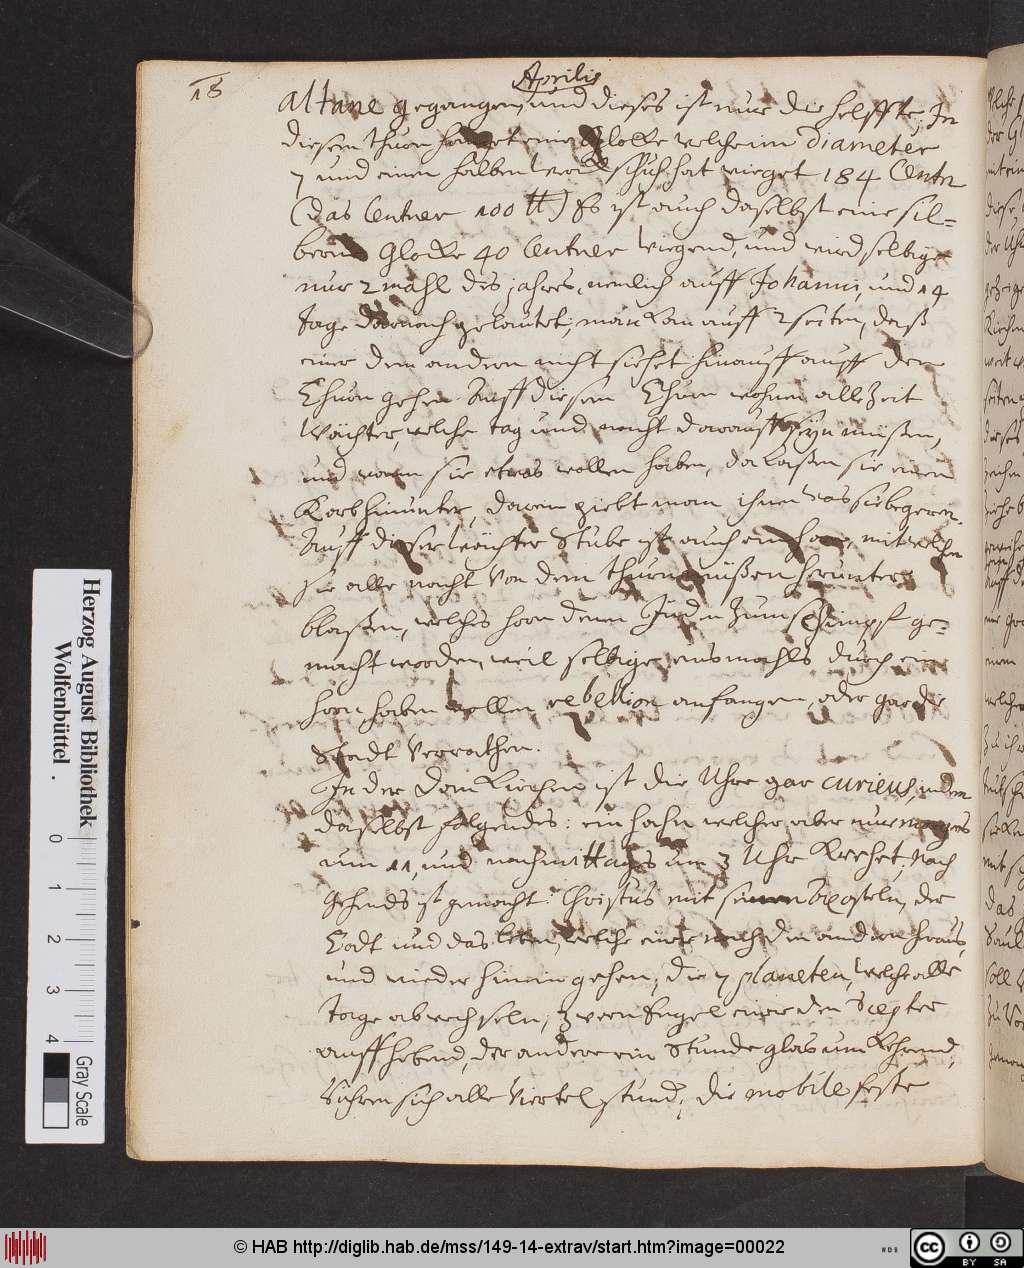 18
Aprilis
altane gegangen, und dieses ist nur die helffte, In
diesem thurn eine Glocke welche im Diameter
7 und einen halben schuh hat wieget 184 Centn
(das Centner 100 ℔) Es ist auch daselbst eine sil=
berne Glocke 40 Centner wiegend, und wird selbige
nur 2 mahl des jahres, nemlich auff Johannis, und 14
tage darnach gelautet; man kan auff 2 seiten, daß
einer den andern nicht siehet hinauff auff den
Thurn gehen. Auff diesem Thurn wohnen alle Zeit
Wächter, welche tag und nacht darauff seyn müßen,
und wann sie etwas wollen haben, da laßen sie einen
Korb hinunter, darein giebt man ihnen was sie begeren.
Auff dieser wächter Stube ist auch ein horn, mit welchen
sie alle nacht von dem thurn müßen herunter
blaßen, welches horn denen Juden zum schimpf ge=
macht worden, weil selbige einsmahls durch ein
horn haben wollen rebellion anfangen, oder gar die
Stadt verrathen.
In der Dom Kirchen ist die Uhr gar curieus, indem
daselbst folgendes: ein hahn welcher aber nur morgens
um 11, und nachmittags um 3 Uhr Krehet, nach
gehends ist gemacht: Christus mit seinen Aposteln, der
Todt und das leben, welche einer nach dem andern heraus
und wieder hinein gehen; die 7 planeten, welche alle
tage abwechseln, zween Engel einer den Scepter
auffhebend, der andere ein Stunde glas um Kehrend,
rühren sich alle viertel stund; die mobile feste
Herzog August Bibliothek
Wolfenbüttel .
0 1 2 3 4
Gray Scale
© HAB http://diglib.hab.de/mss/149-14-extrav/start.htm?image=00022
CC BY SA